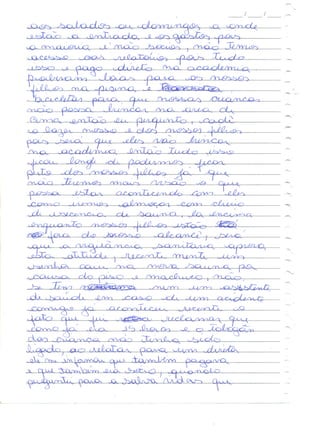 aos sabados ou domingos a onde
estão a entrada e os gastos pois
a maioria e não socios, não temos
acesso aos relatorios pois tudo
isso e pago direto na academia
proibiram boias para os nossos
filhos na piscina e
bicicletas para que nossas crianças
não possa brincar na area de
cima então eu pergunto, cadê
o lazer nosso e dos nossos filhos
pois será que eles vão brincar
na academia então tudo isso
ficou longe de podermos ficar
perto dos nossos filhos já que
não temos mais visão o que
possa estar acontecendo com eles
como vamos almoçar com cheiro
de essencia de sauna, lá em cima
enquanto nossos filhos estão
fora de nosso alcance, será
que a vigilância sanitaria aprova
esta atitude, recente mente um
senhor caiu na nova sauna por
causa do piso e machucou, não
se tem nem um assistente
de saude em caso de um acidente
comigo já aconteceu recente o
fato que fui reclamar que
como já era 15 horas e o tobogan
das criança não tinha sido
ligado, ao relatar para um diretor
ele me informou que também pagava
e que também era socio, quando
perguntei para a salva vidas que